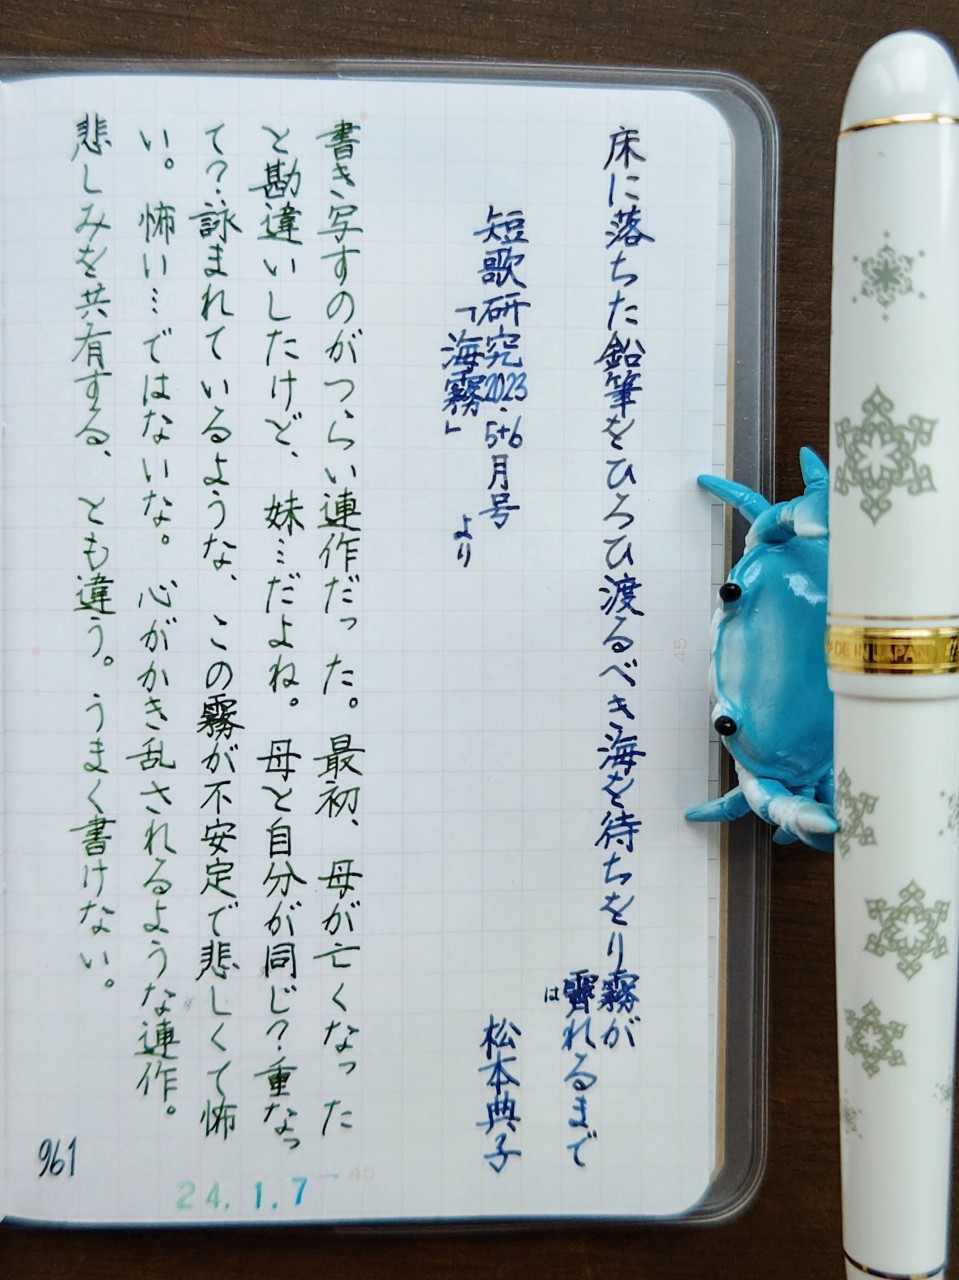 床に落ちた鉛筆をひろひ渡るべき海を待ちをり霧が
霽れるまで
は
松本典子
短歌研究2023.5+6月号
「海霧」より
書き写すのがつらい連作だった。最初、母が亡くなった
と勘違いしたけど、妹…だよね。母と自分が同じ?重なっ
て?詠まれているような、この霧が不安定で悲しくて怖
い。怖い…ではないな。心がかき乱されるような連作。
悲しみを共有する、とも違う。うまく書けない。
961
24.1.7
45
45
MADE IN JAPAN